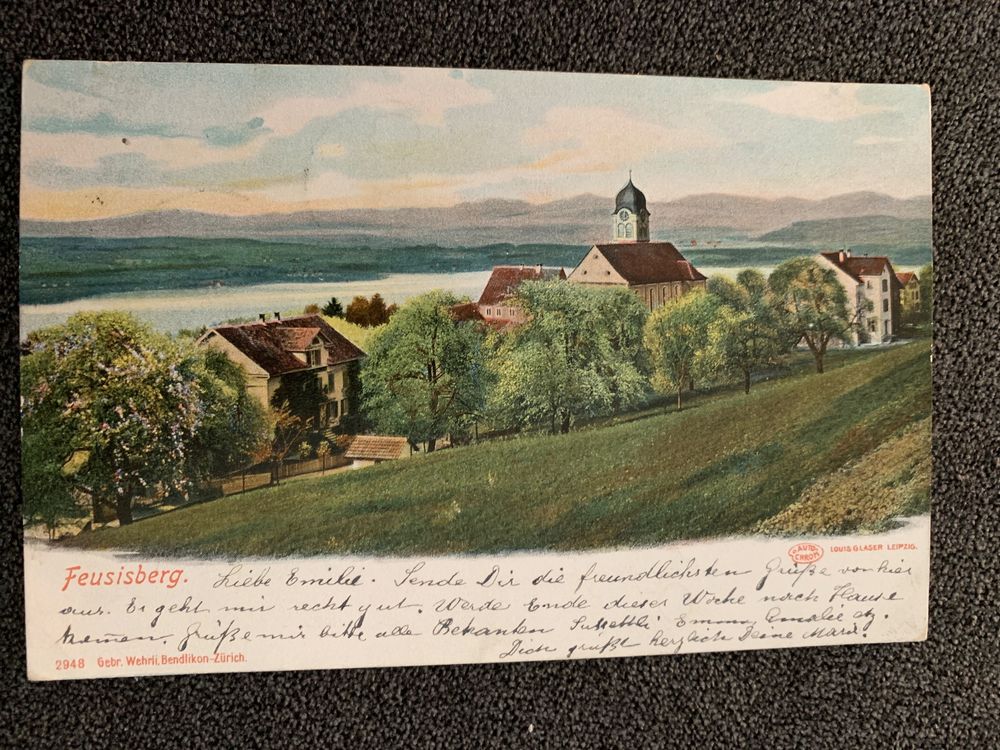 AUTO
CHROM
LOUIS GLASER LEIPZIG.
Feusisberg. Liebe Emilie. Sende Dir die freundlichsten Grüße von hier
aus. Es geht mir recht gut. Werde Ende dieser Woche nach Hause
kommen. Grüße mir bitte alle Bekanten Emma, Emalie etz.
Dich grüßt herzlich Deine Marie.
2948 Gebr. Wehrli, Bendlikon-Zürich.